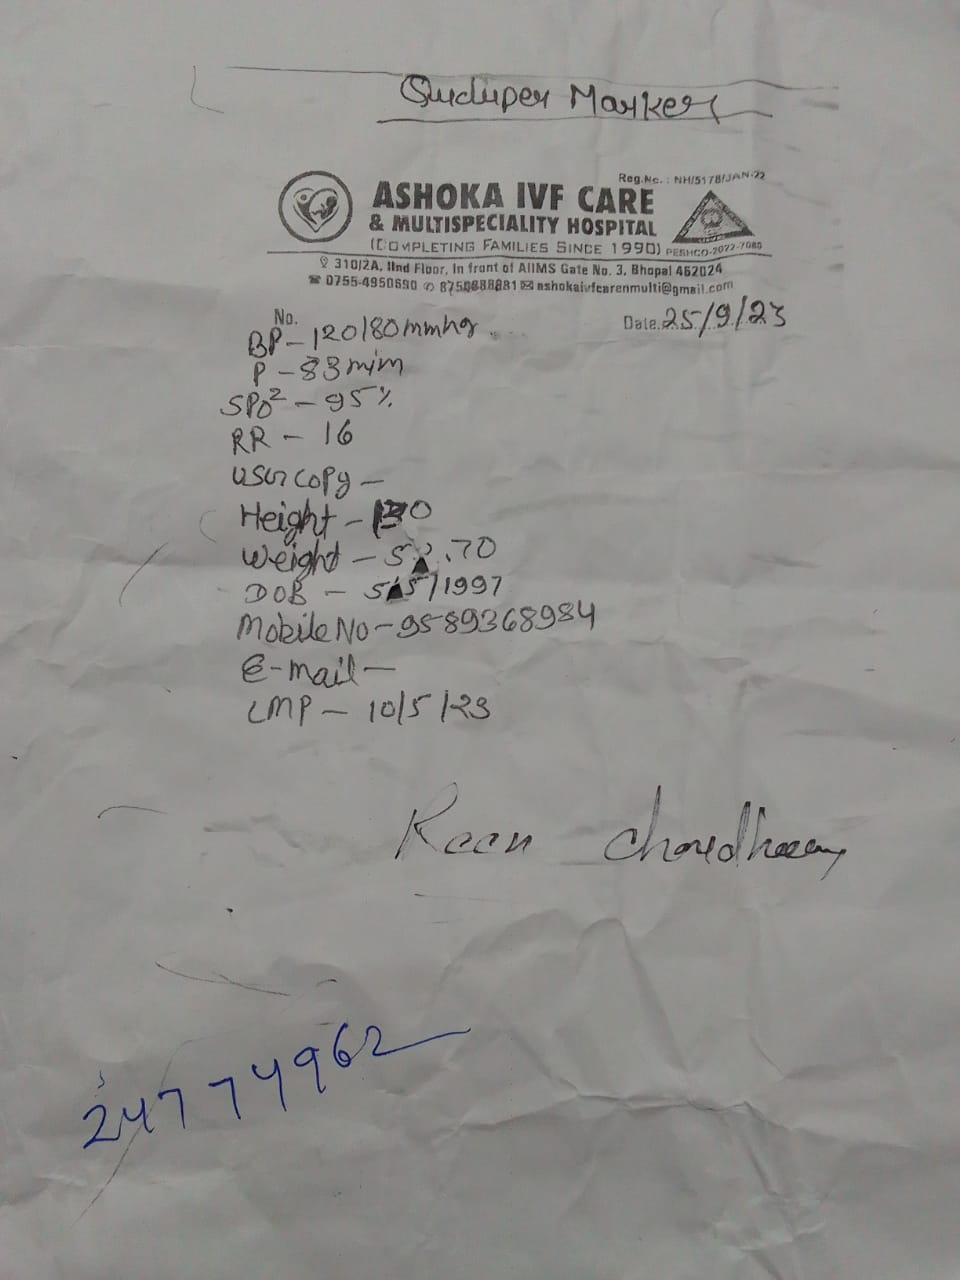 Quduper Marker
Reg.No. : NH/5178/JAN-22
ASHOKA IVF CARE
& MULTISPECIALITY HOSPITAL
(COMPLETING FAMILIES SINCE 1990) PESHCO-2022-7080
310/2A, IInd Floor, In front of AIIMS Gate No. 3, Bhopal 462024
0755-4950690 8750888881 ashokaivfcarenmulti@gmail.com
No. Date. 25/9/23
BP - 120/80 mmhg
P - 83 m/m
SPO2 - 95 %
RR - 16
usg copy -
Height -
Weight -
DOB - 5/5/1997
Mobile No - 9589368984
E-mail -
LMP - 10/5/23
Choudhary
24774962